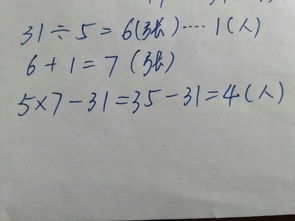 31÷5=6(张)····1(人)
6+1=7(张)
5×7-31=35-31=4(人)